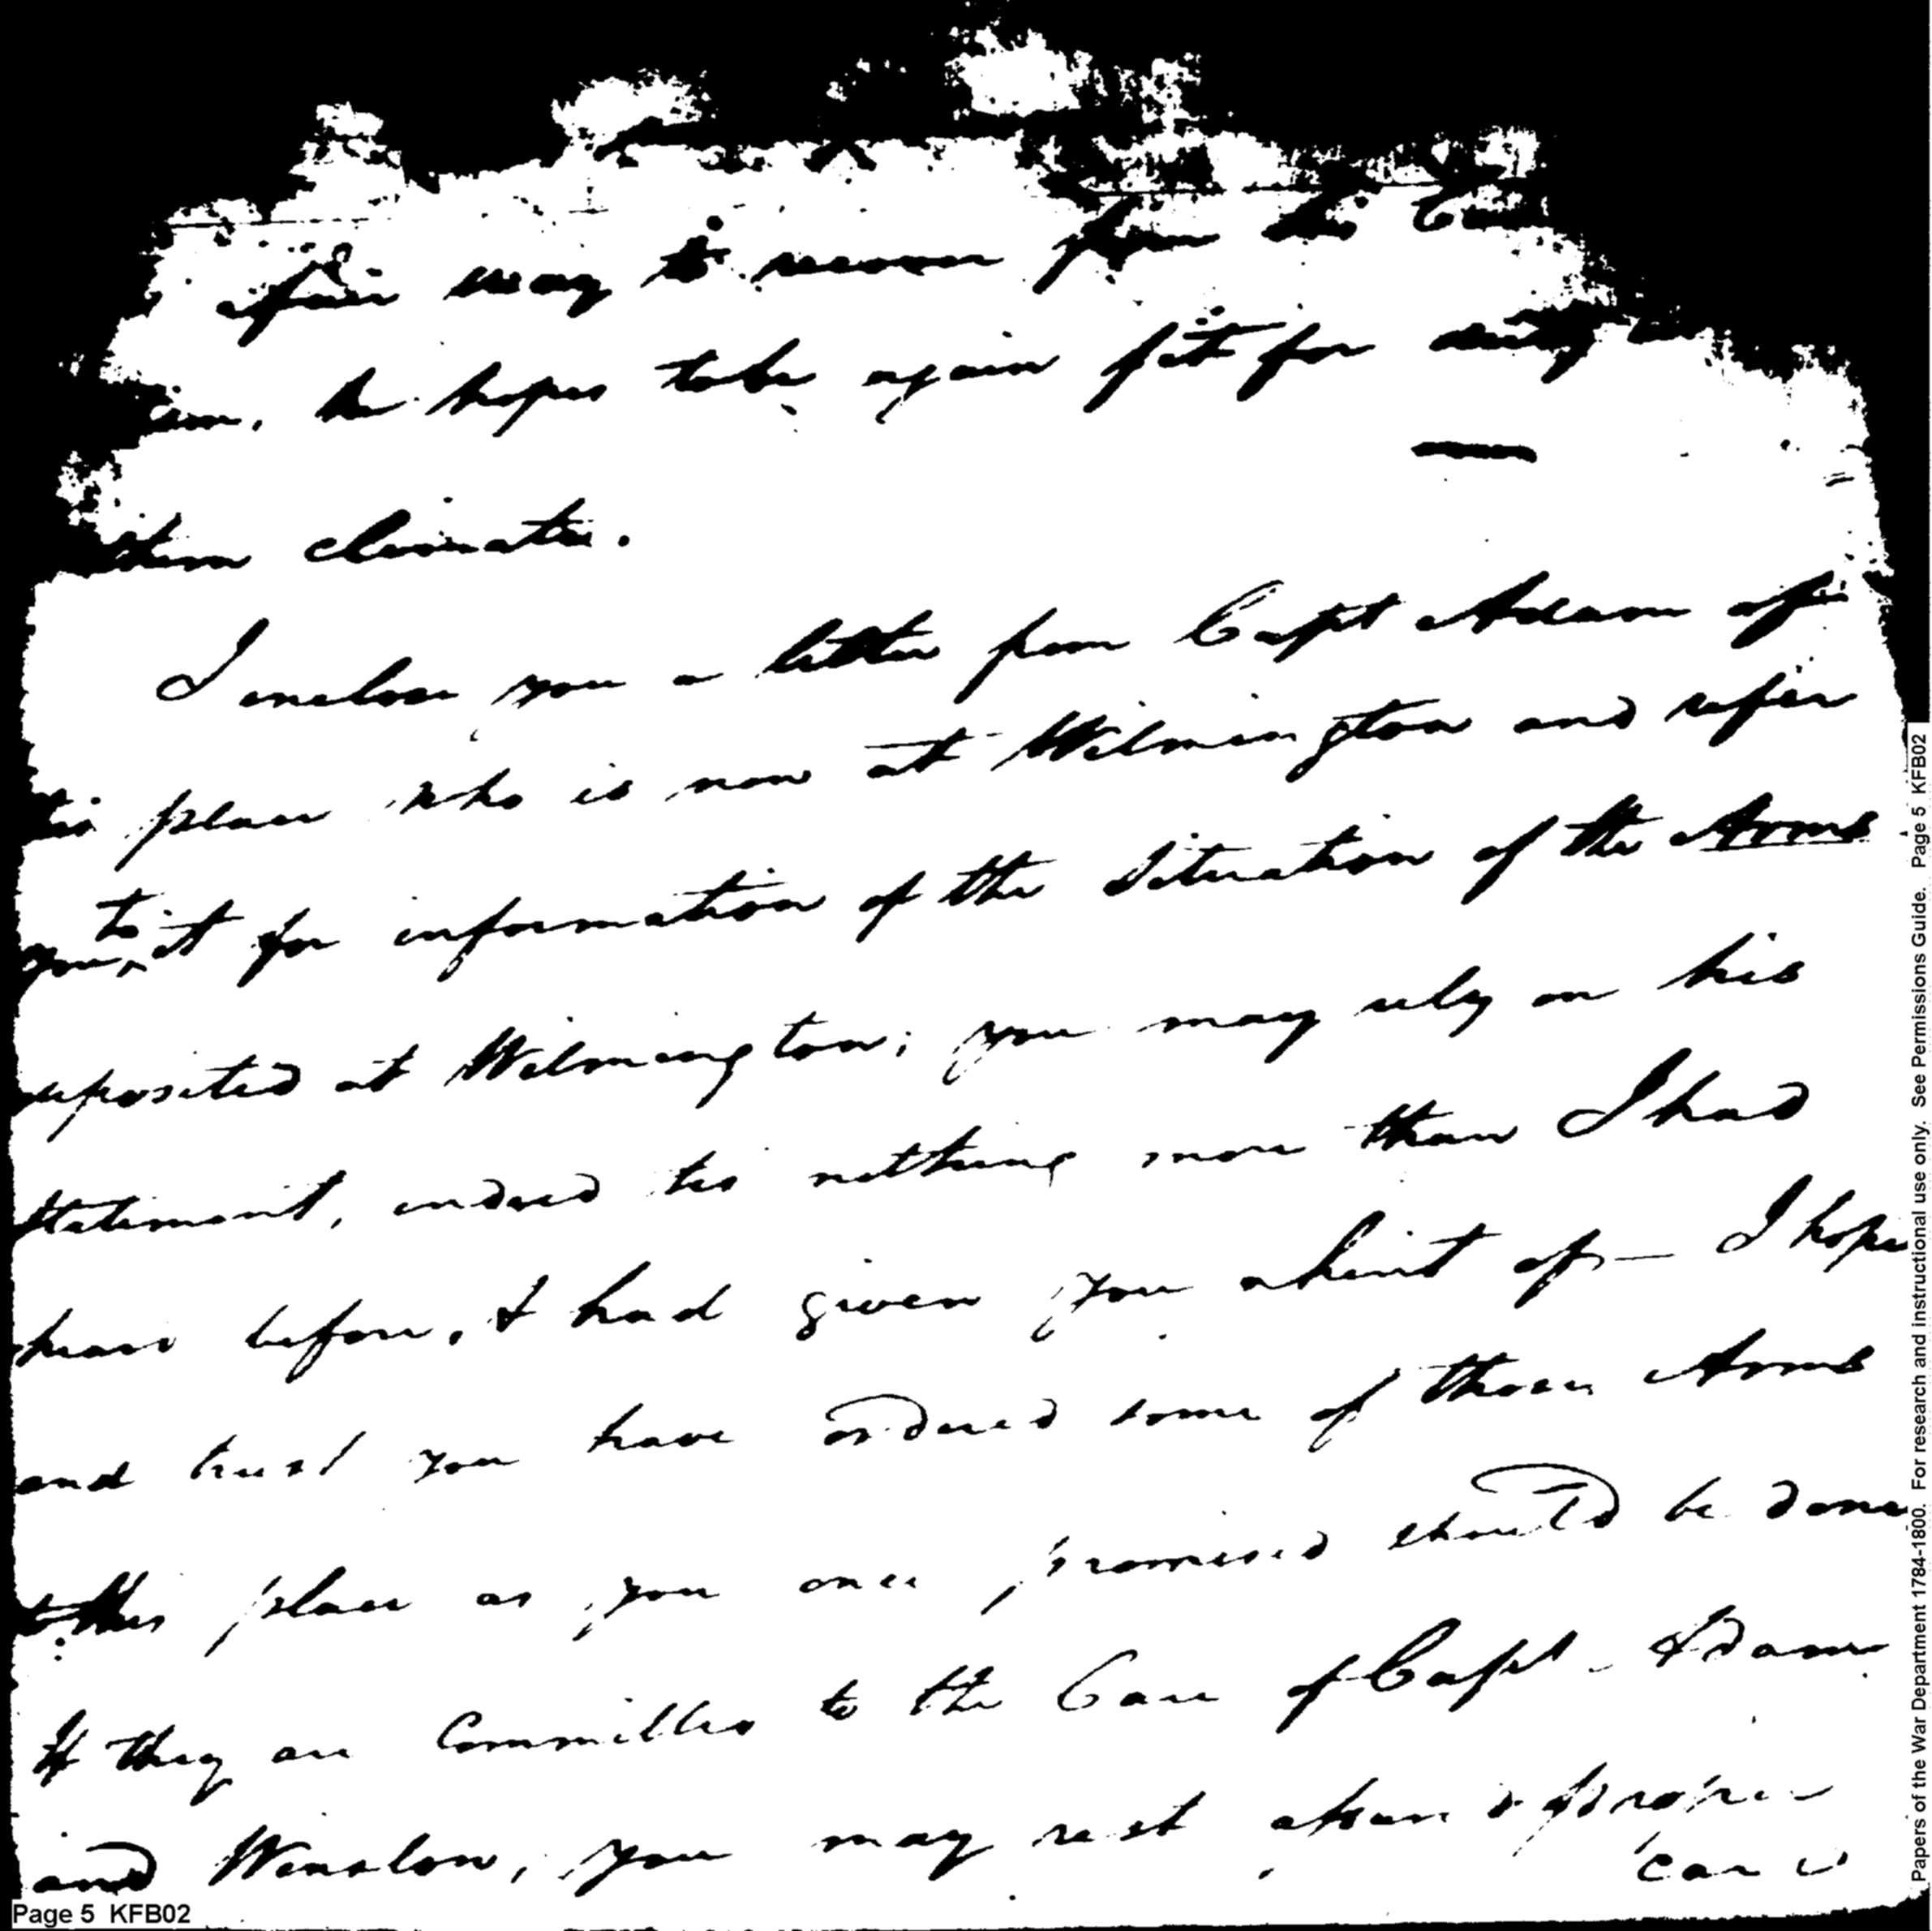 fair way to recover from his
he hopes to be again fit for duty
climate.
I enclose you a letter from Capt Adam of
this place who is now at Wilmington and refer
you to it for information of the Situation of the Arms
deposited at Wilmington; you may rely on his
Statement, indeed tis nothing more than I had
hear before, & had given you a hint of — I hope
and trust you have ordered some of those Arms
to this place as you once promised should be done
If they are Committed to the Care of Capt. Adam
and Winslow, you may rest proper
care is
Page 5 KFB02
Papers of the War Department 1784-1800. For research and instructional use only. See Permissions Guide. Page 5 KFB02